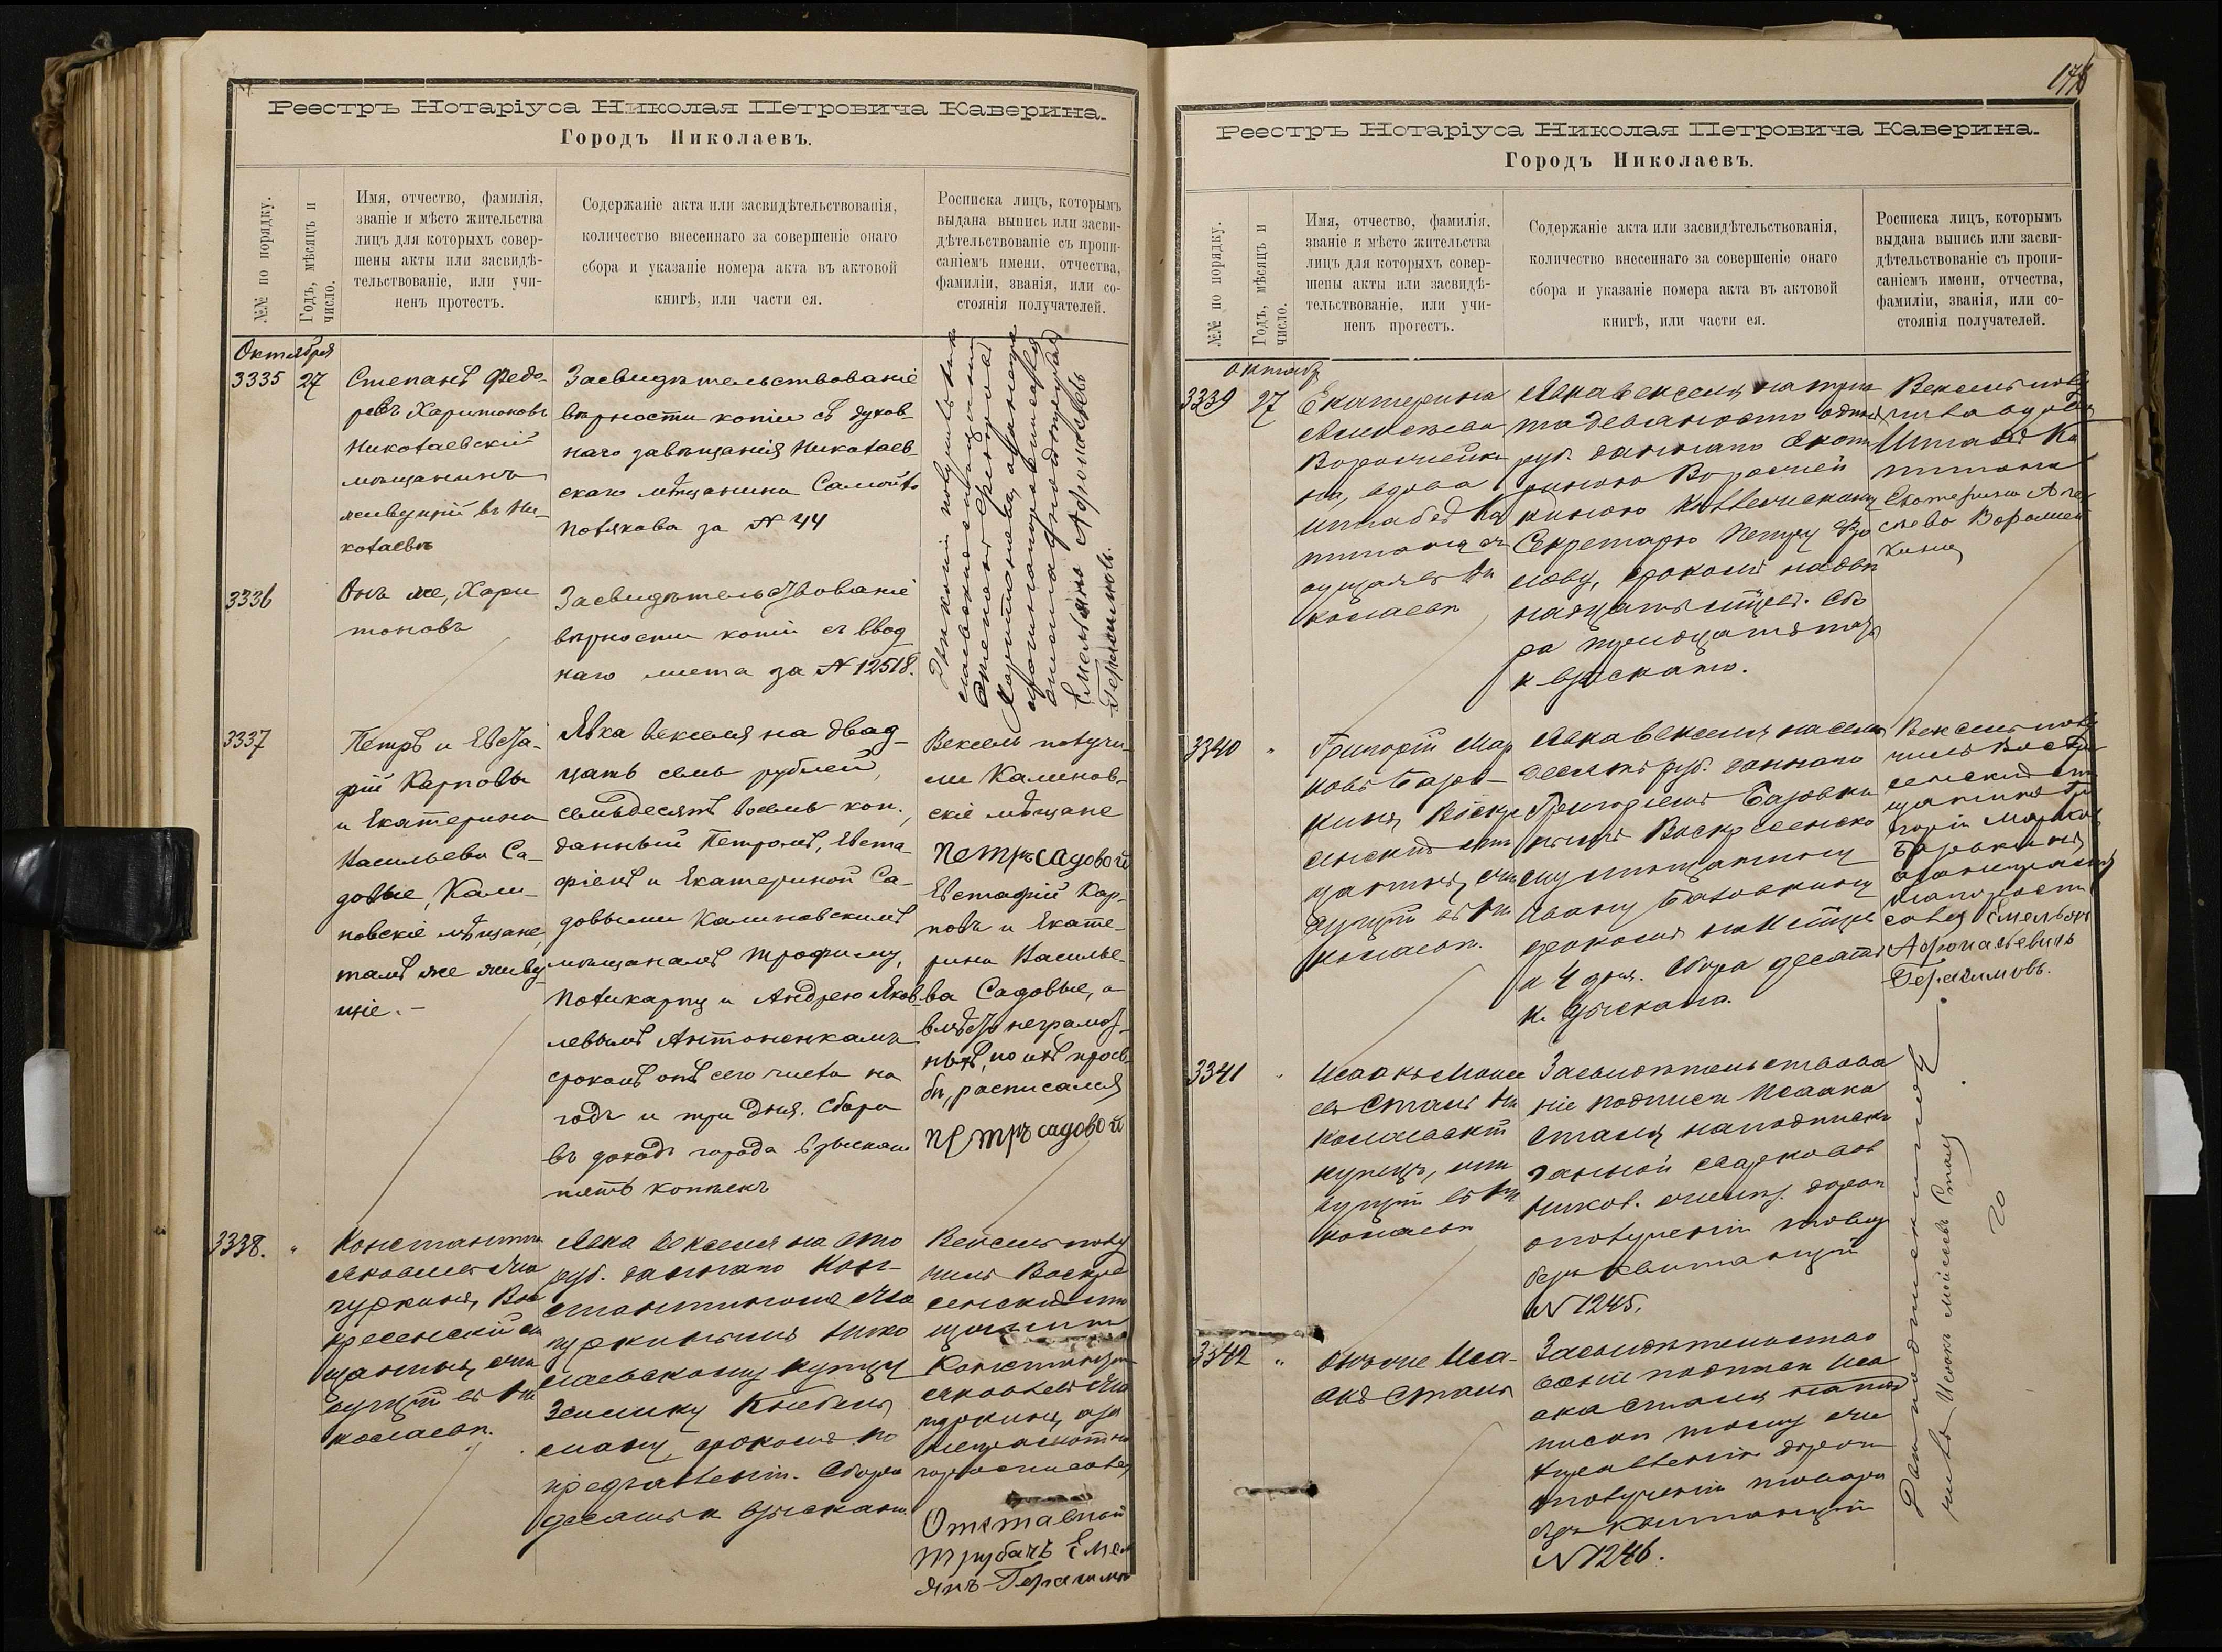 Реестръ Нотаріуса Николая Петровича Каверина.
Городъ Николаевъ.
№№ по порядку.
Годъ, мѣсяцъ и
число.
Имя, отчество, фамилія,
званіе и мѣсто жительства
лицъ для которыхъ совер-
шены акты или засвидѣ-
тельствованіе, или учи-
ненъ протестъ.
Содержаніе акта или засвидѣтельствованія,
количество внесеннаго за совершеніе онаго
сбора и указаніе номера акта въ актовой
книгѣ, или части ея.
Росписка лицъ, которымъ
выдана выпись или засви-
дѣтельствованіе съ пропи-
саніемъ имени, отчества,
фамиліи, званія, или со-
стоянія получателей.
Октября
3335
27
Степанъ Федо-
ровъ Харитоновъ
Николаевскій
мѣщанинъ
живущій въ Ни-
колаевѣ
Засвидѣтельствованіе
вѣрности копіи съ духов-
наго завѣщанія Николаев-
скаго мѣщанина Самойло
Полякова за № 44
Двѣ копіи получилъ Нико-
лаевскій мѣщанинъ
Степанъ Федоровъ
Харитоновъ, а
Емельянъ Афонасьевъ
Герасимовъ.
3336
Онъ же, Хари
тоновъ
Засвидѣтельствованіе
вѣрности копіи съ ввод
наго листа за № 12518.
3337
Петръ и Евста-
фій Карповы
и Екатерина
Васильева Са-
довые, Кали-
новскіе мѣщане,
тамъ же живу
щіе. -
Явка векселя на двад-
цать семь рублей,
семьдесятъ восемь коп.,
данный Петромъ, Евста-
фіемъ и Екатериной Са-
довыми Калиновскимъ
мѣщанамъ Трофиму,
Поликарпу и Андрею Яков-
левымъ Антоненкамъ
срокомъ отъ сего числа на
годъ и три дня. Сбора
въ доходъ города взыскано
пять копѣекъ
Вексель получи-
ли Калинов-
скіе мѣщане
Петръ садовой
Евстафій Кар-
повъ и Екате-
рина Василье-
ва Садовые, а
вмѣсто неграмот-
ныхъ, по ихъ прось-
бѣ, расписался
Петръ садовой
3338.
"
Константинъ
Яковлевъ Мо
чуркинъ, Вос
кресенскій мѣ
щанинъ, жи
вущій въ Ни
колаевѣ.
Явка векселя на сто
руб. даннаго Кон-
стантиномъ Мо
чуркинымъ Нико
лаевскому купцу
срокомъ по
предъявленіи. Сбора
десять к. взыскано.
Вексель полу
чилъ Воскре
сенскій мѣ
щанинъ
Константинъ
Яковлевъ Мо
чуркинъ, а за
неграмотн.
Отставной
трубачъ Емел
янъ Герасимов
Реестръ Нотаріуса Николая Петровича Каверина.
Городъ Николаевъ.
№№ по порядку.
Годъ, мѣсяцъ и
число.
Имя, отчество, фамилія,
званіе и мѣсто жительства
лицъ для которыхъ совер-
шены акты или засвидѣ-
тельствованіе, или учи-
ненъ протестъ.
Содержаніе акта или засвидѣтельствованія,
количество внесеннаго за совершеніе онаго
сбора и указаніе номера акта въ актовой
книгѣ, или части ея.
Росписка лицъ, которымъ
выдана выпись или засви-
дѣтельствованіе съ пропи-
саніемъ имени, отчества,
фамиліи, званія, или со-
стоянія получателей.
Октября
3339
27
Екатерина
Алексѣева
Воромчейки
на, вдова
штабсъ Ка
питана жи
вущая въ Ни
колаевѣ
Явка векселя на три
ста девяносто одинъ
руб. даннаго Екате
риною Воромчей
киною Коллежскому
Секретарю Петру
срокомъ на две
надцать мѣсяц. Сбо
ра тридцать
к взыскано.
Вексель полу
чила вдова
Штабсъ Ка
питана
Екатерина Алек
сѣева Воромчей
кина
3340
"
Григорій Мар
ковъ Базов-
кинъ, Воскре
сенскій мѣ
щанинъ, жи
вущій въ Ни
колаевѣ.
Явка векселя на семь
десятъ руб. даннаго
Григоріемъ Базовки
нымъ Воскресенско
му мѣщанину
Ивану Базовкину
срокомъ на
и 4 дня. Сбора десять
к. взыскано.
Вексель полу
чилъ Воскре
сенскій мѣ
щанинъ Гри
горій Марковъ
Базовкинъ
Емельянъ
Афонасьевичъ
Герасимовъ.
3341
"
Исаакъ Моисе
евъ Сталь Ни
колаевскій
купецъ, жи
вущій въ Ни
колаевѣ
Засвидѣтельствова
ніе подписи Исаака
Сталя на подпискѣ
данной
о полученіи товара
безъ квитанціи
№ 1245.
Двѣ подписки полу
чилъ Исаакъ Мойсеевъ Сталь
3342
"
Онъ же Иса-
акъ Сталь
Засвидѣтельство
ваніе подписи Иса
ака Сталя на под
пискѣ тому же
о полученіи товара
безъ квитанціи
№ 1246.